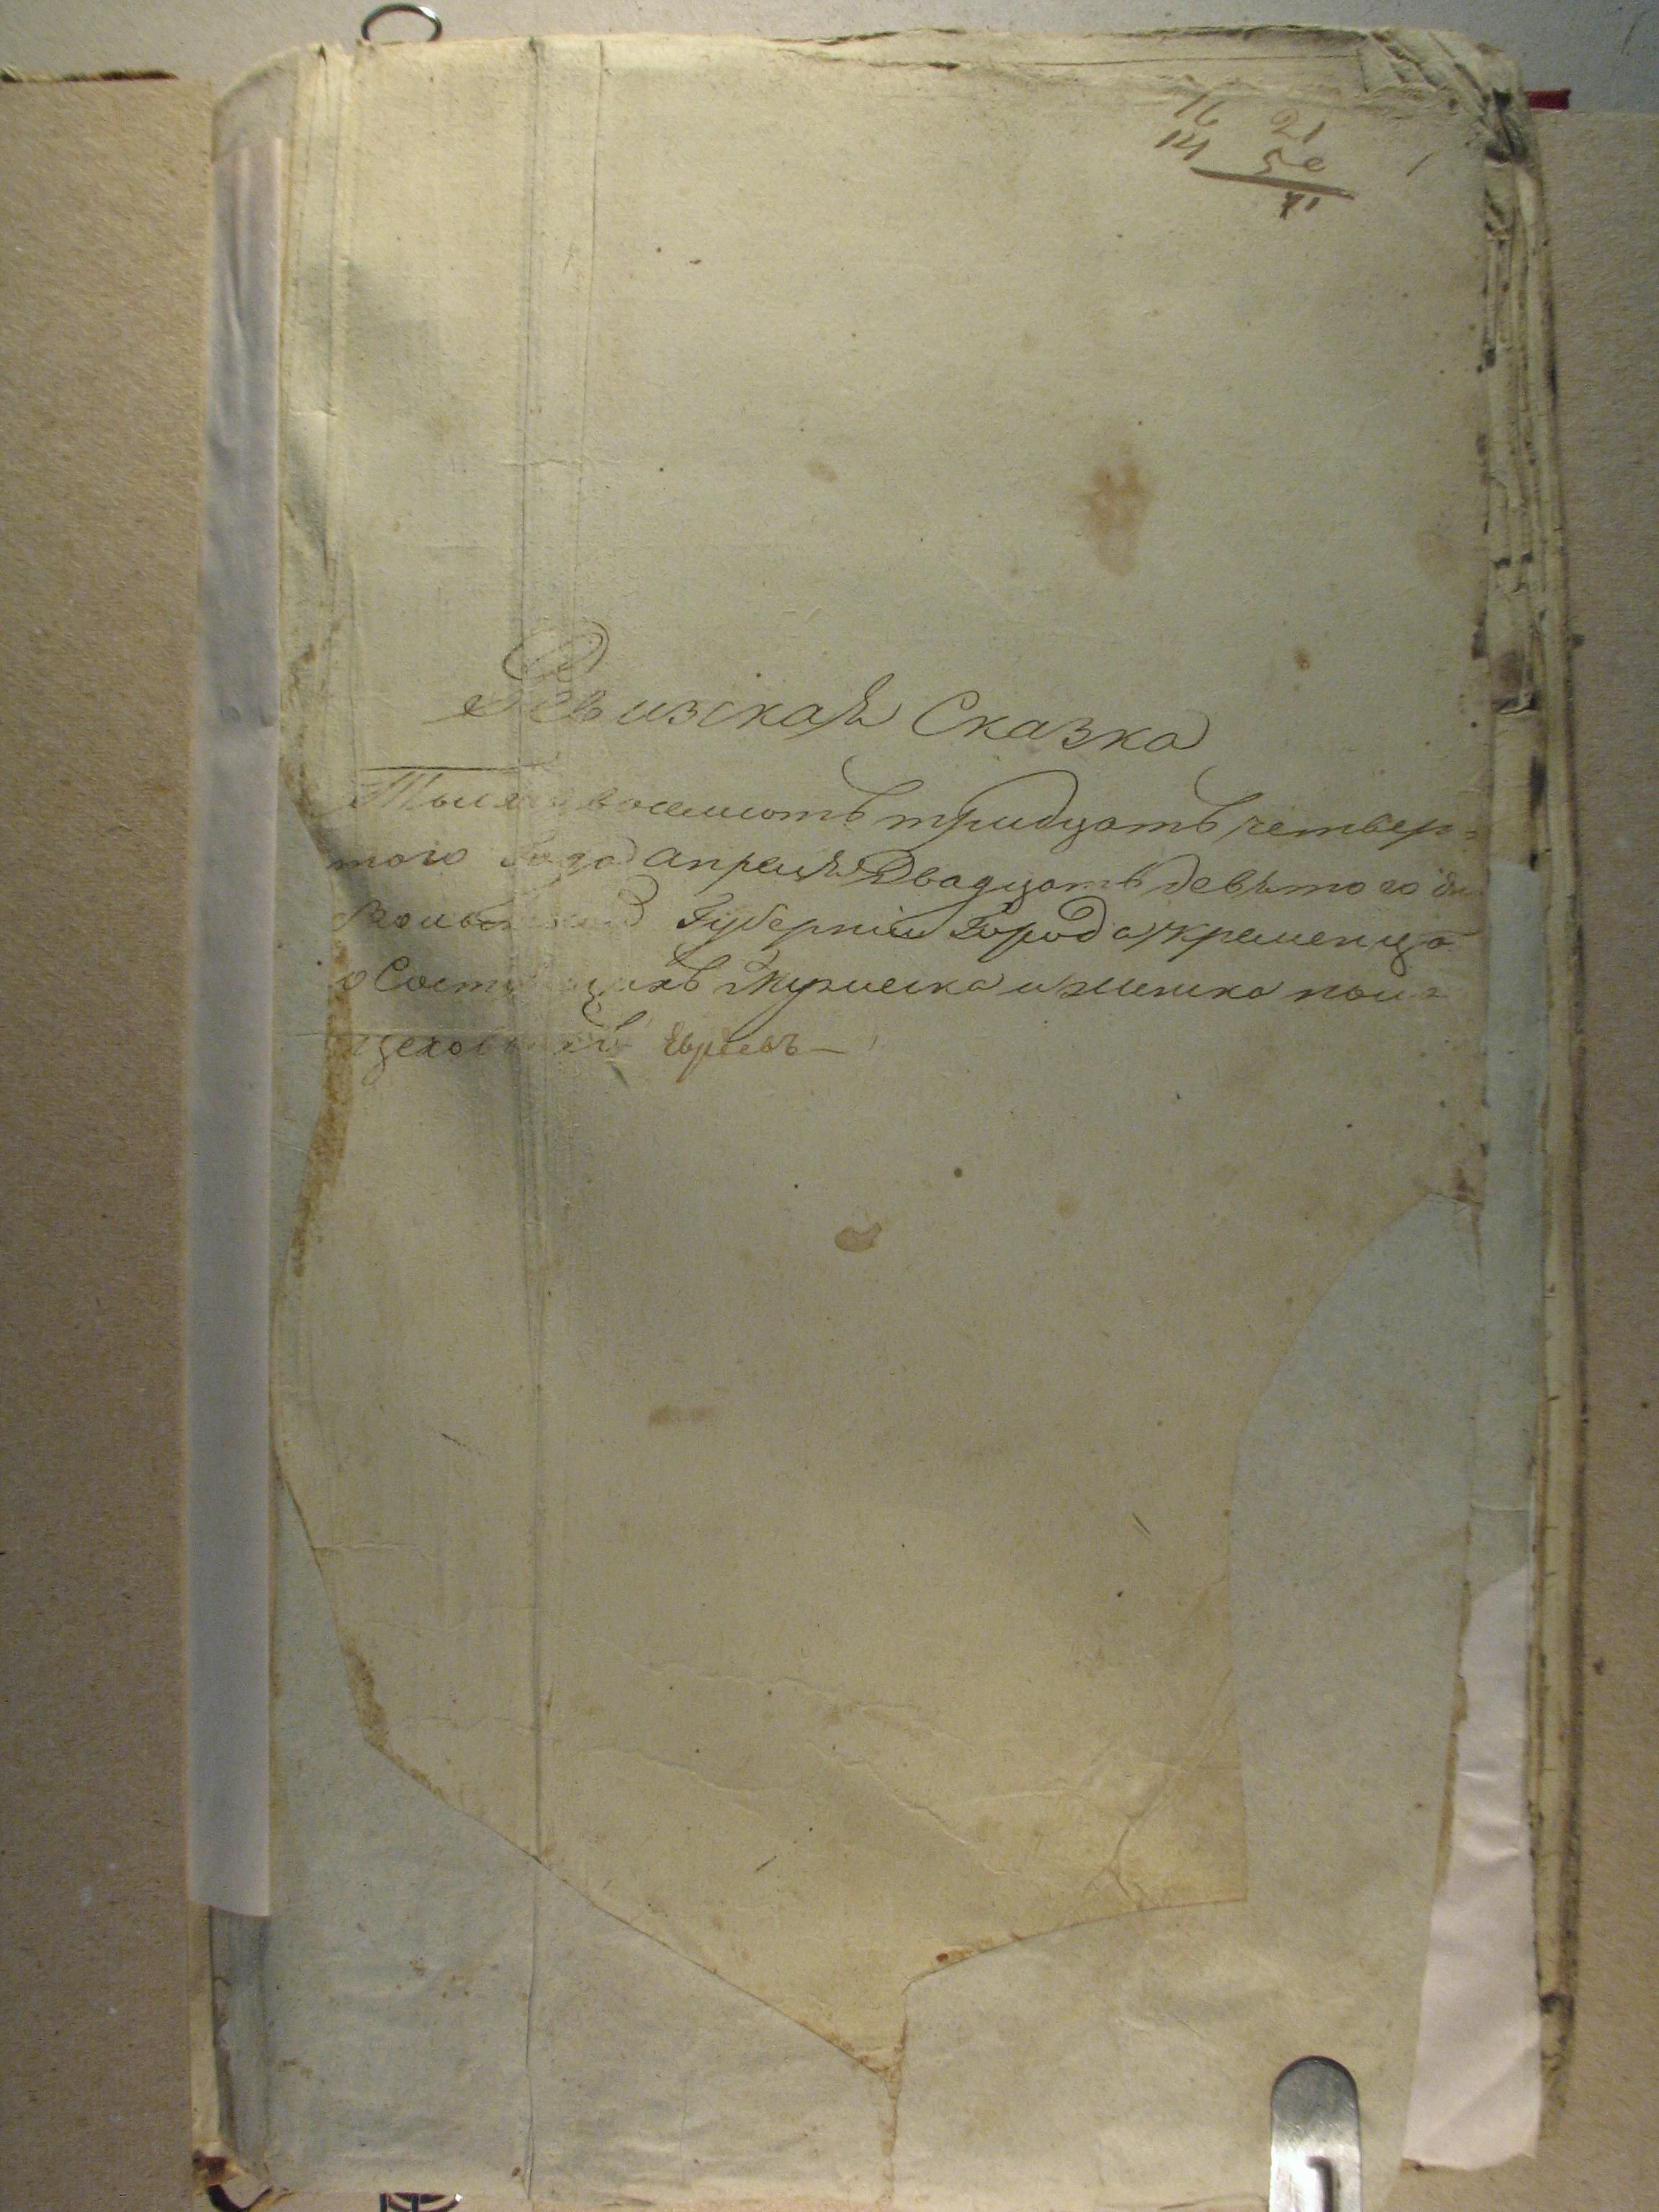 16 21
141 50
71
1
Ревизская Сказка
Тысяча восемсотъ тридцать четвер=
того Года апреля Двадцать девятого дня
Волынской Губернии Города Кременца
о Состоящихъ
цеховыхъ Евреевъ —